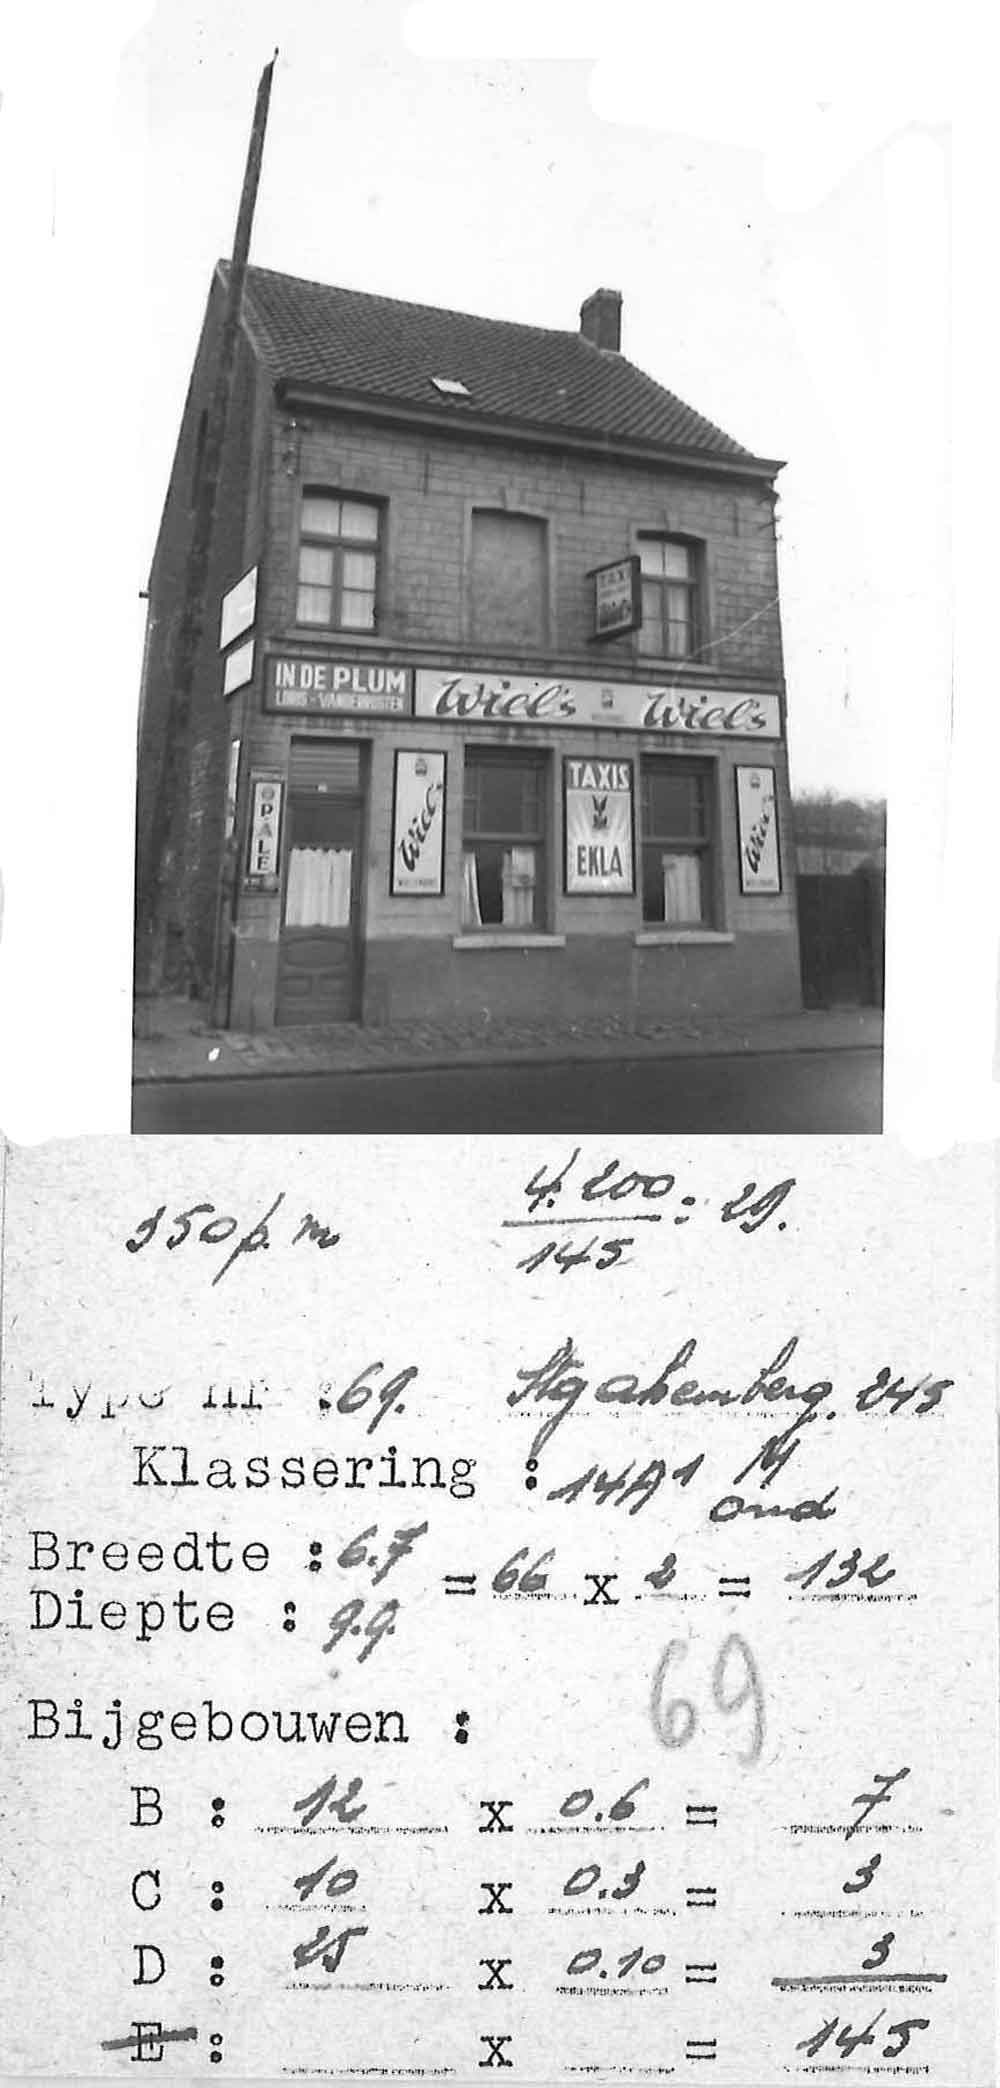 TAXI
Wiel's
IN DE PLUM
Wiel's Wiel's
OPALE
Wiel's
TAXIS
EKLA
Wiel's
350 p. m
4.200 : 29.
145
Type nr : 69. Stg alsemberg. 245
Klassering : 14A1 M
oud
Breedte : 6.7
= 66 x 2 = 132
Diepte : 9.9.
69
Bijgebouwen :
B : 12 x 0.6 = 7
C : 10 x 0.3 = 3
D : 25 x 0.10 = 3
E : x = 145